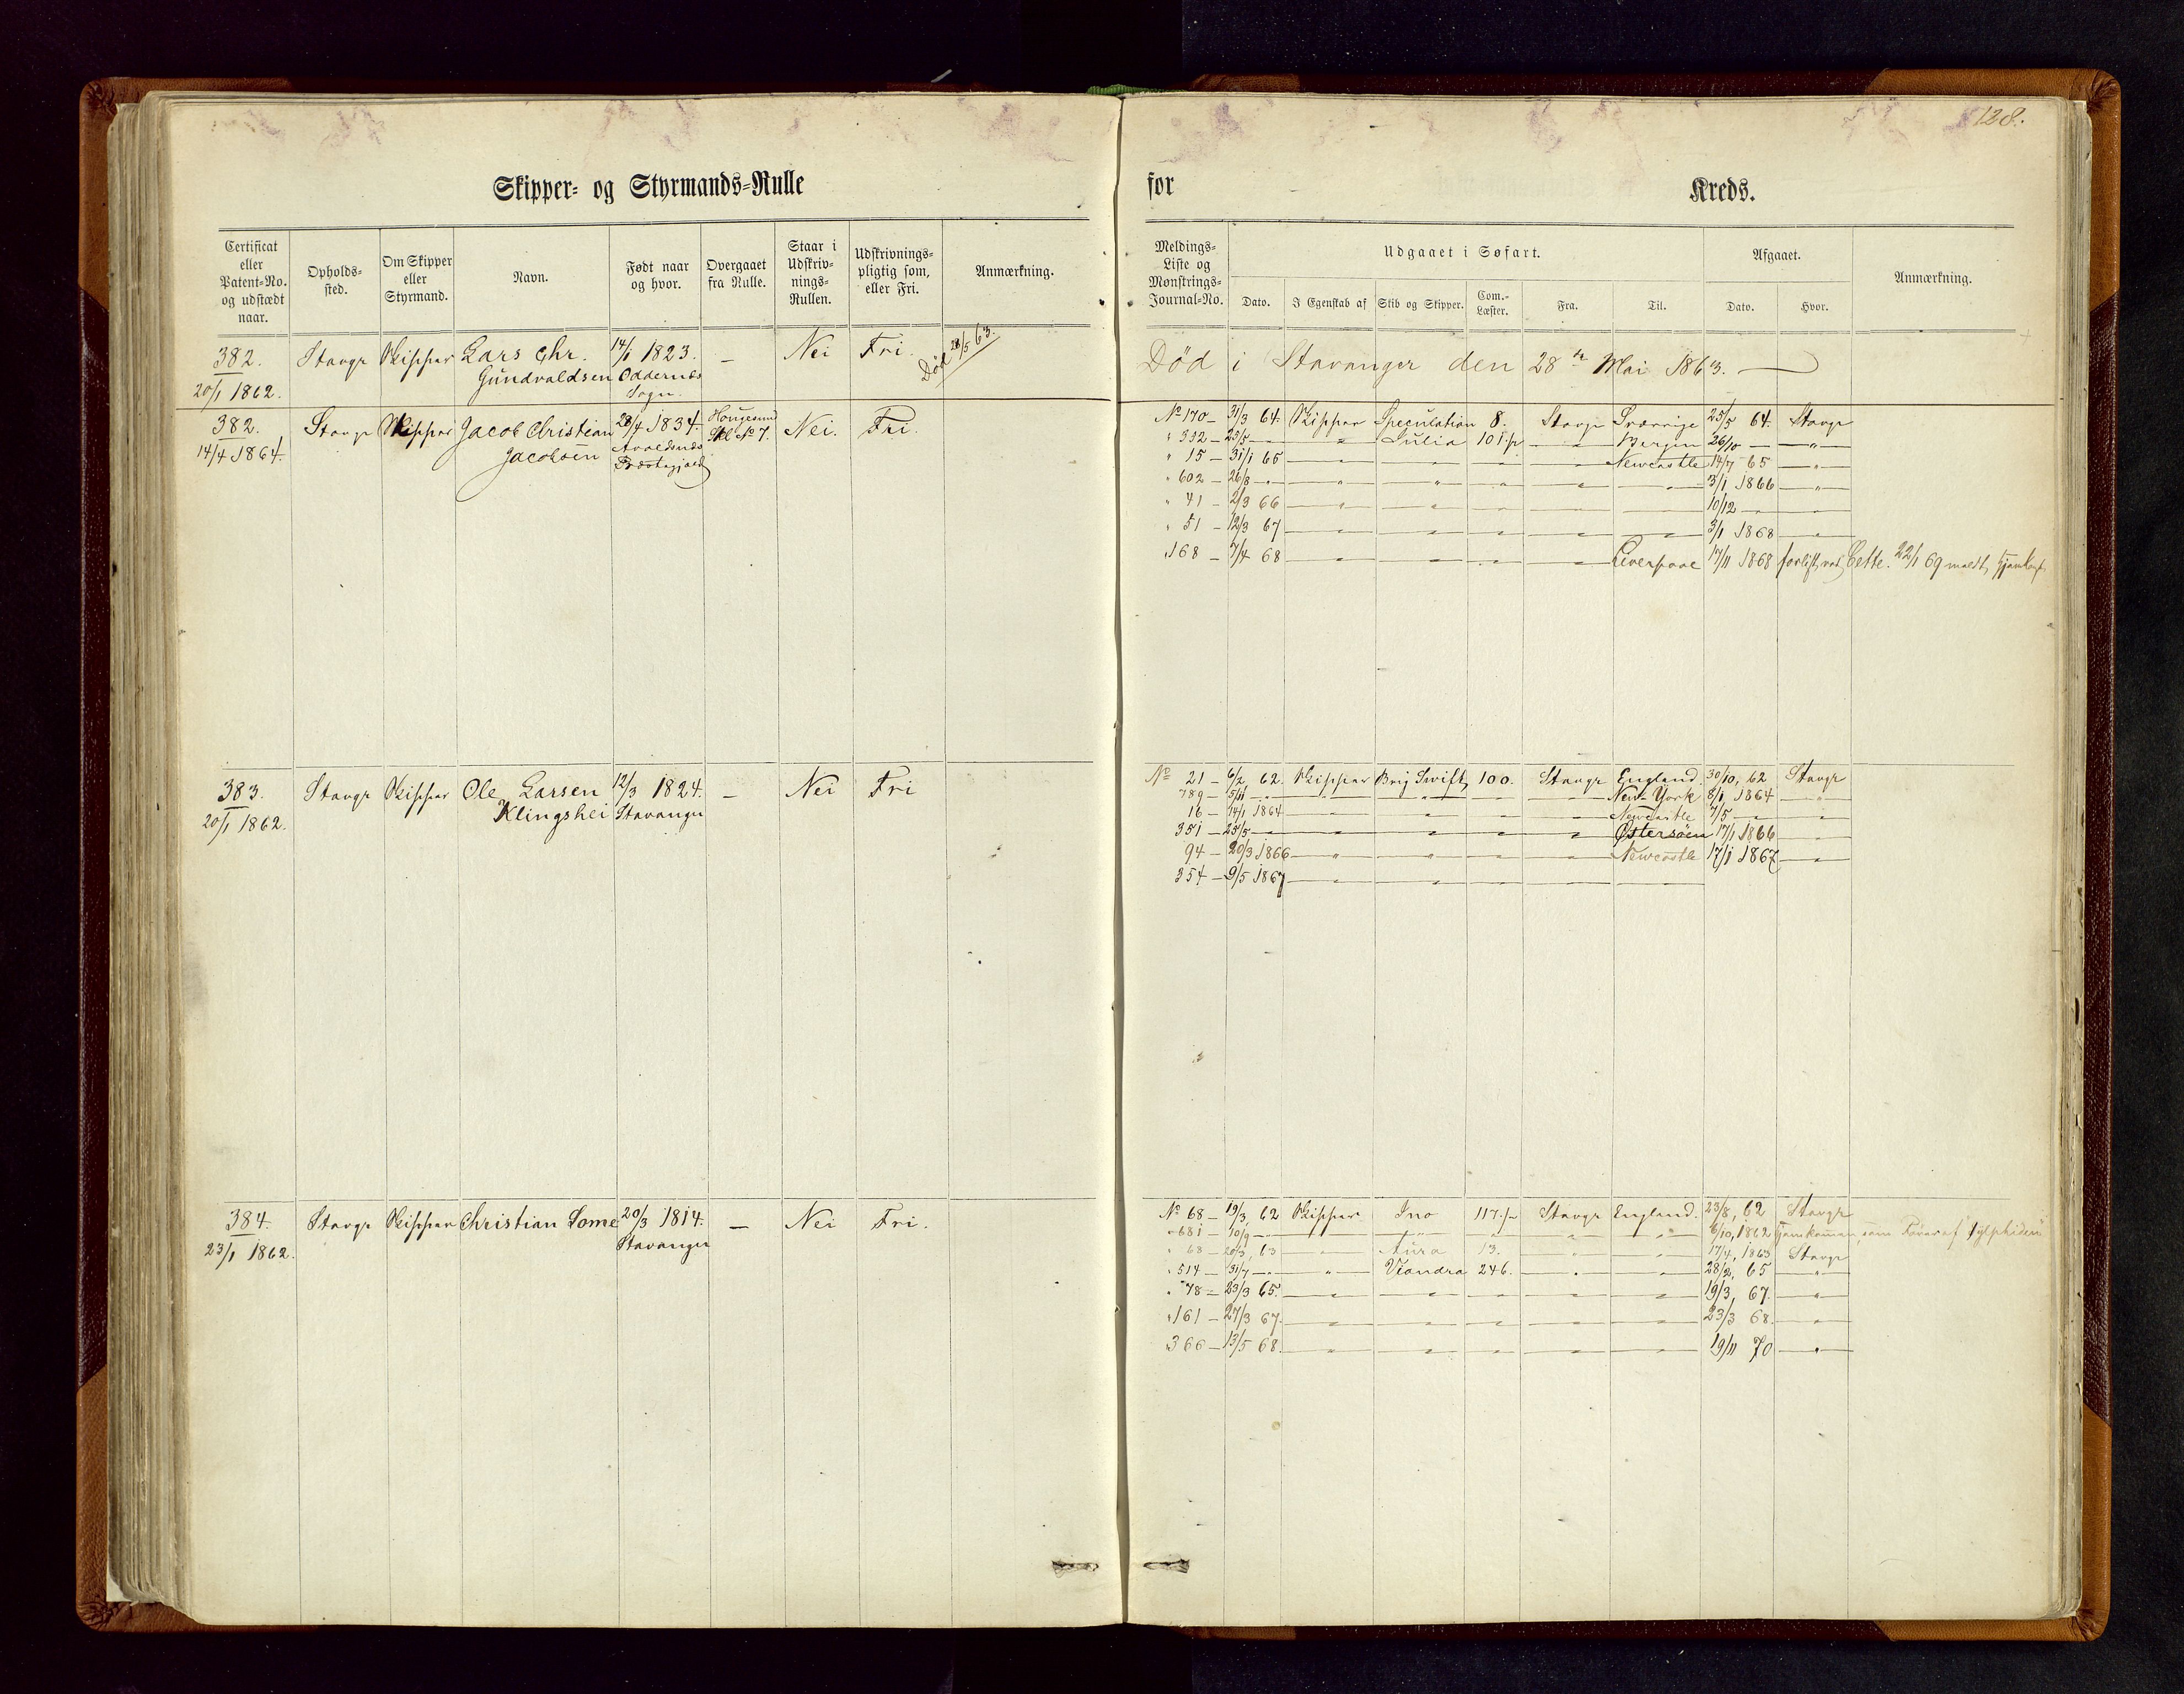 128.
Skipper- og Styrmands-Rulle for Kreds.
Certificat eller Patent-No. og udstædt naar.
Opholds-sted.
Om Skipper eller Styrmand.
Navn.
Født naar og hvor.
Overgaaet fra Rulle.
Staar i Udskriv-nings-Rullen.
Udskrivnings-pligtig som, eller Fri.
Anmærkning.
Meldings-Liste og Mønstrings-Journal-No.
Udgaaet i Søfart.
Dato.
I Egenskab af
Skib og Skipper.
Com.-Læster.
Fra.
Til.
Afgaaet.
Dato.
Hvor.
Anmærkning.
382. Stavgr Skipper Lars Chr. 14/1 1823. — Nei Fri. Død 28/5 63.
20/1 1862. Gundvaldsen Oddernæs
Sogn.
Død i Stavanger den 28de Mai 1863.
382. Stavgr Skipper Jacob Christian 28/4 1834. Hougesund Nei. Fri.
14/4 1864. Jacobsen Avaldsnæs No 7.
Præstegjæld
No 170 — 31/3 64. Skipper Speculation 8. Stavgr Sverrige 25/5 64. Stavgr
" 332 — 25/5 — " Julia 101 p " Bergen 26/10 — "
" 15 — 31/1 65 — — — — Newcastle 14/7 65 — "
" 602 — 26/8 — " — " — " — " — " 3/1 1866 — "
" 41 — 2/3 66 — " — " — " — " — 10/12 — "
" 51 — 12/3 67 — " — " — " — " — " 3/1 1868 — "
" 168 — 7/4 68 — " — " — " — " Liverpool 17/11 1868 forlist, ved Cette. 22/1 69 meldt, hjemkost
383. Stavgr Skipper Ole Larsen 12/3 1824. — Nei Fri
20/1 1862. Klingshei Stavanger
No 21 — 6/2, 62. Skipper Brig Swift, 100. Stavgr England. 30/10, 62 Stavgr
789 — 5/11 — " — " — " — " New-York 8/1 1864 — "
16 — 14/1 1864 — " — " — " — " Newcastle 7/5 — "
351 — 25/5 — " — " — " — " Østersøen 17/1 1866 — "
94 — 20/3 1866 — " — " — " — " Newcastle 17/1 1867 — "
354 — 9/5 1867 — " — " — " — " — "
384. Stavgr Skipper Christian Some 20/3 1814. — Nei Fri.
23/1 1862. Stavanger
No 68 — 19/3, 62 Skipper Ino 117 p Stavgr England. 23/8, 62 Stavgr
" 681 — 10/9 — " — " — " — " — " 6/10, 1862 hjemkommen, som Fører af Sylphiden
" 68 — 20/3, 63 — " Aura 13. " " 17/4, 1863 Stavgr
" 514 — 31/7 — " — " 246. " " 65 "
" 78 — 23/3 65. — " — " — " — " — " 19/3, 67. — "
" 161 — 27/3 67. — " — " — " — " — " 23/3 68. — "
366 — 13/5 68. — " — " — " — " — " 19/11 70 — "